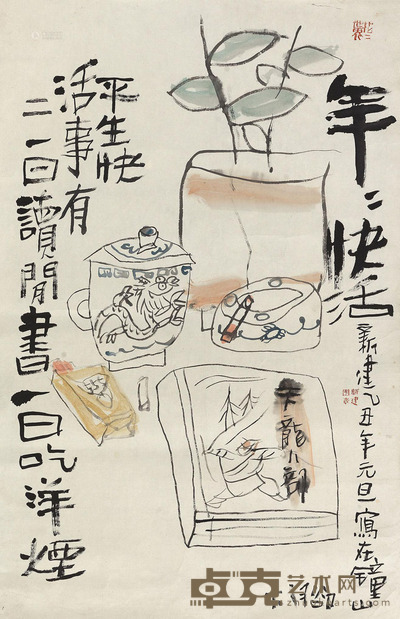 年〻快活
新建乙丑年元旦寫在鐘山
平生快
活事有
二一曰讀閒書一曰吃洋煙
天龍八部
卓克艺术网